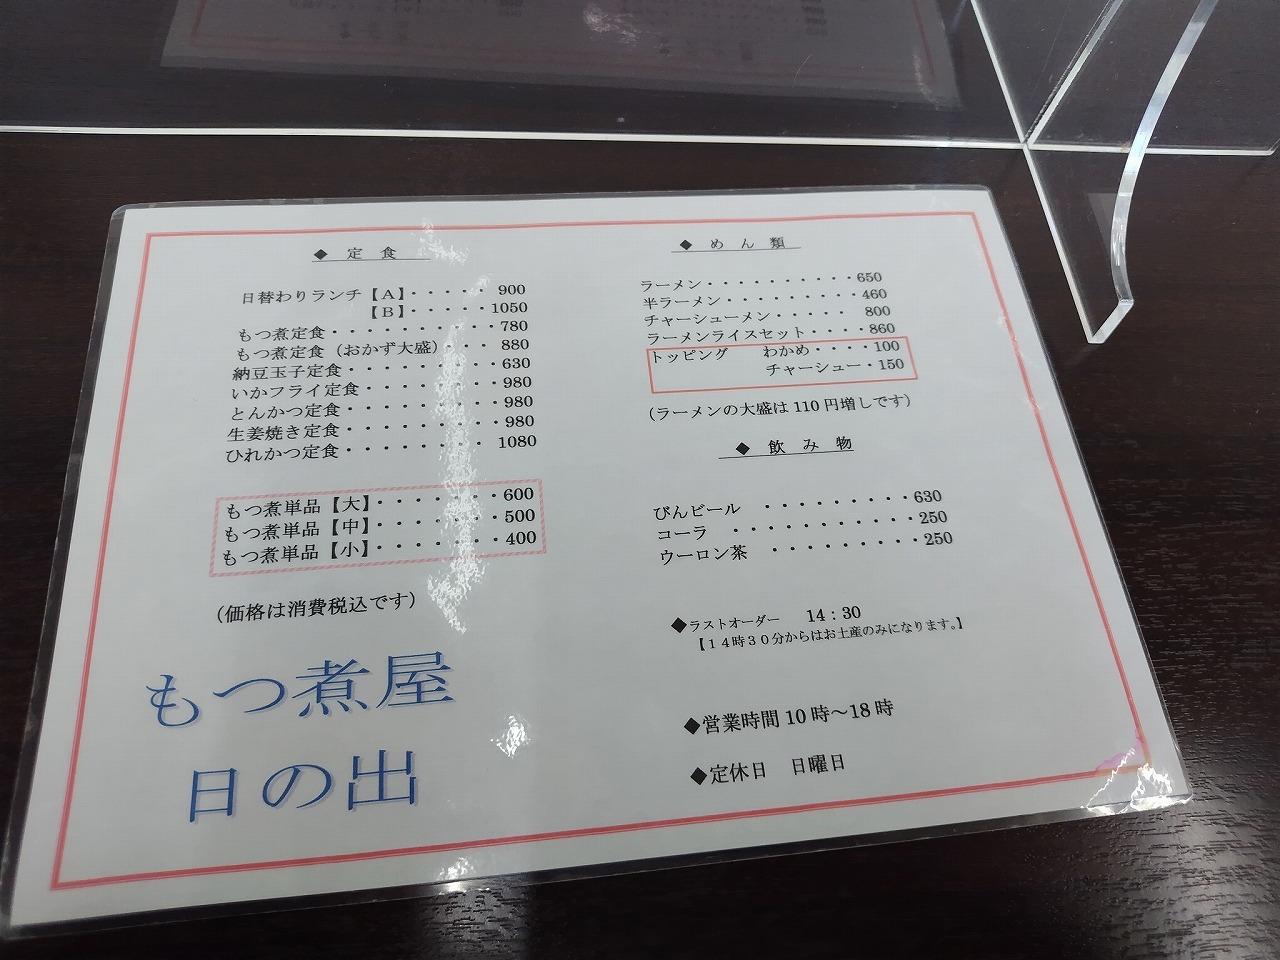 ◆ 定 食
日替わりランチ【A】・・・・・・ 900
【B】・・・・・・1050
もつ煮定食・・・・・・・・・・780
もつ煮定食（おかず大盛）・・・ 880
納豆玉子定食・・・・・・・・・630
いかフライ定食・・・・・・・・980
とんかつ定食・・・・・・・・・980
生姜焼き定食・・・・・・・・・980
ひれかつ定食・・・・・・・・ 1080
もつ煮単品【大】・・・・・・・600
もつ煮単品【中】・・・・・・・500
もつ煮単品【小】・・・・・・・400
（価格は消費税込です）
もつ煮屋
日の出
◆ め ん 類
ラーメン・・・・・・・・・・650
半ラーメン・・・・・・・・・460
チャーシューメン・・・・・ 800
ラーメンライスセット・・・・860
トッピング わかめ・・・・100
チャーシュー・150
（ラーメンの大盛は110円増しです）
◆ 飲 み 物
びんビール ・・・・・・・・630
コーラ ・・・・・・・・・・250
ウーロン茶 ・・・・・・・・250
◆ラストオーダー 14：30
【１４時３０分からはお土産のみになります。】
◆営業時間10時～18時
◆定休日 日曜日